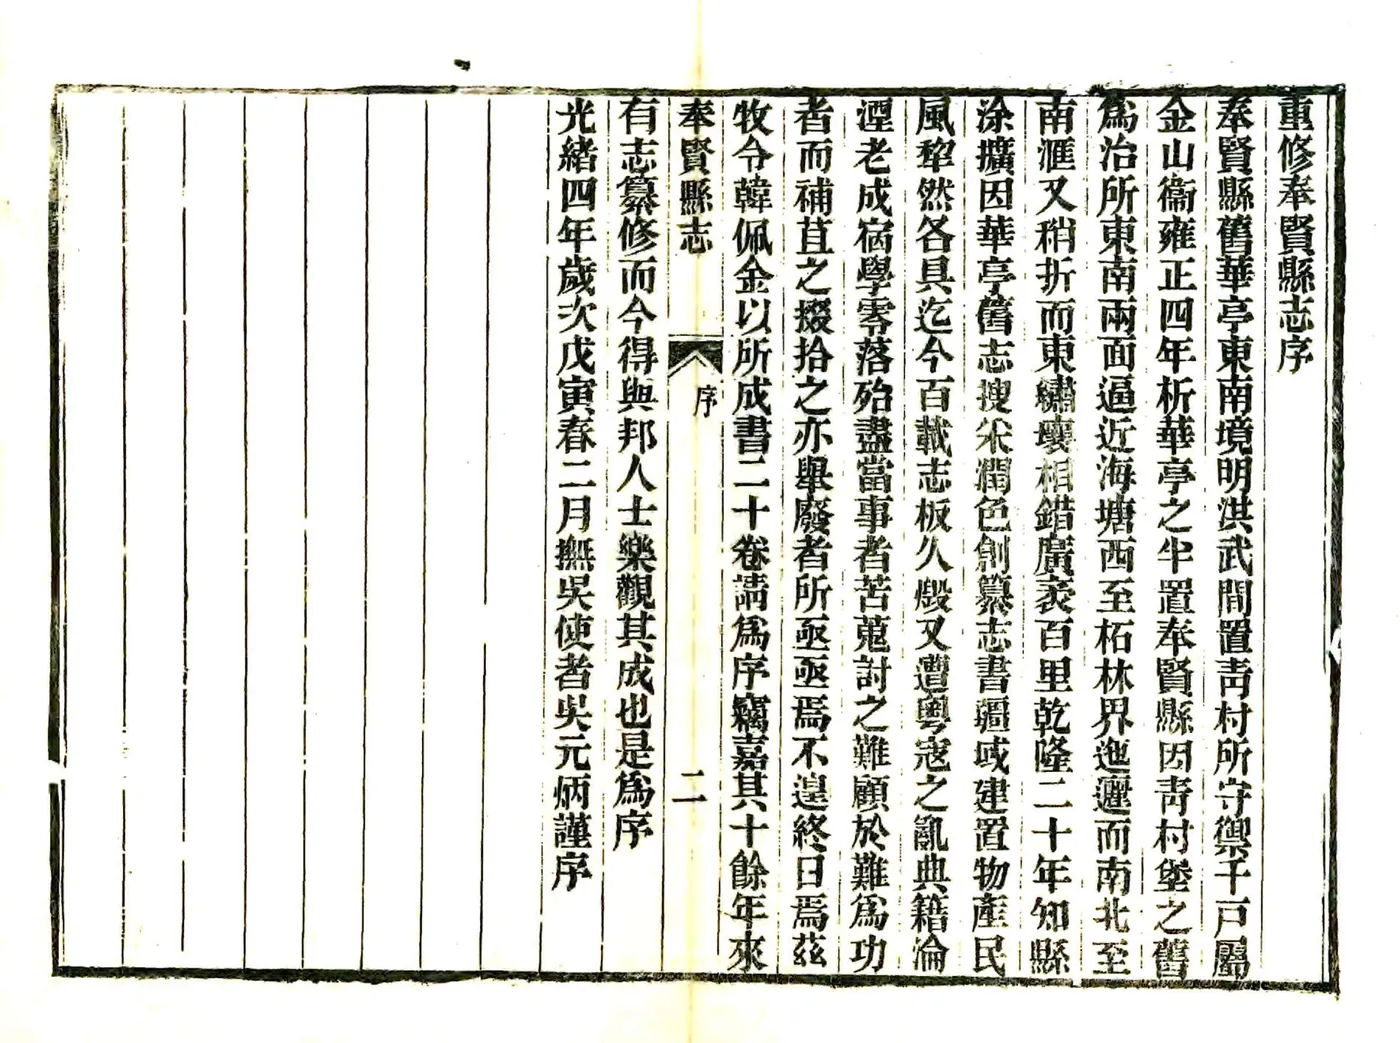 重修奉賢縣志序
奉賢縣舊華亭東南境明洪武間置青村所守禦千戸屬
金山衞雍正四年析華亭之半置奉賢縣因青村堡之舊
爲治所東南兩面逼近海塘西至柘林界迤邐而南北至
南滙又稍折而東繡壤相錯廣袤百里乾隆二十年知縣
涂擴因華亭舊志搜采潤色創纂志書疆域建置物產民
風犂然各具迄今百載志板久燬又遭粵寇之亂典籍淪
湮老成宿學零落殆盡當事者苦蒐討之難顧於難爲功
者而補苴之掇拾之亦舉廢者所亟亟焉不遑終日焉茲
牧令韓佩金以所成書二十卷請爲序竊嘉其十餘年來
奉賢縣志
序
二
有志纂修而今得與邦人士樂觀其成也是爲序
光緒四年歲次戊寅春二月撫吳使者吳元炳謹序